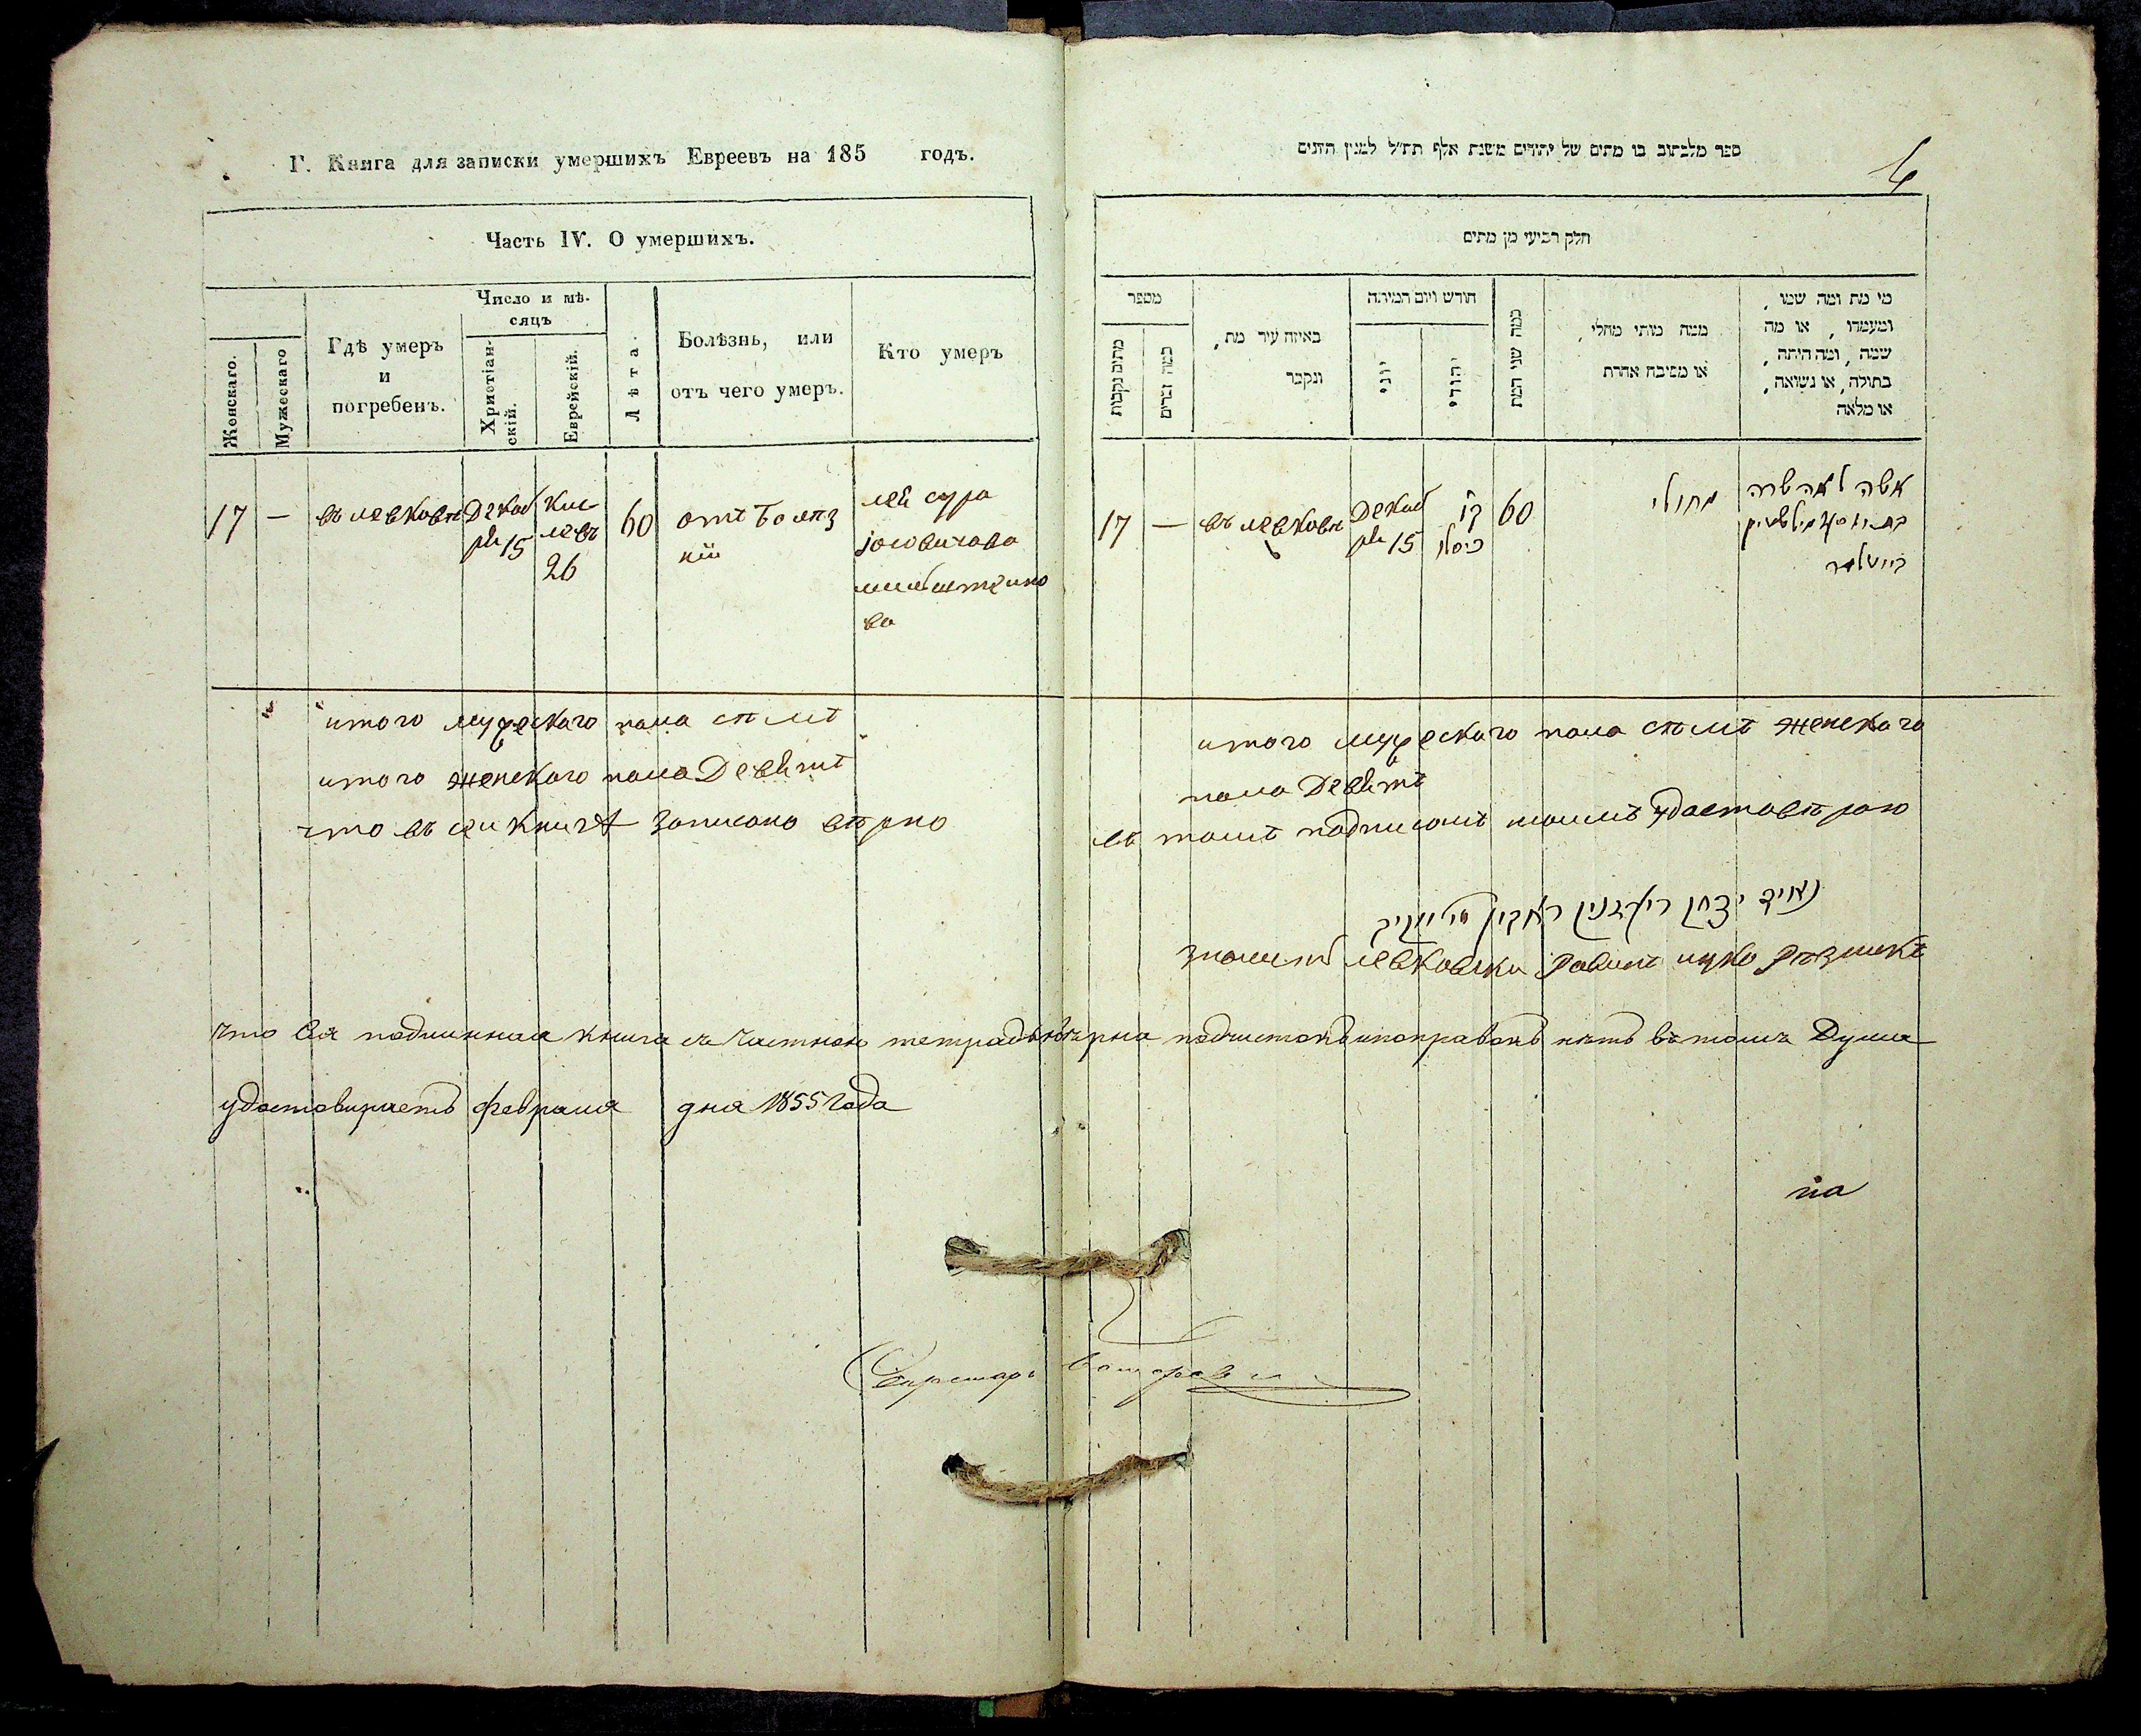 Г. Книга для записки умершихъ Евреевъ на 185 годъ.
Часть IV. О умершихъ.
Женскаго.
Мужескаго
Гдѣ умеръ
и
погребенъ.
Число и мѣ-
сяцъ
Христіан-
скій.
Еврейскій.
Лѣта.
Болѣзнь, или
отъ чего умеръ.
Кто умеръ
17
—
въ левковѣ
Декаб
ря 15
Кис
левъ
26
60
отъ Болѣз
ніи
лея сура
итого мужескаго пола
итого женскаго пола Девять
что въ сеи книгѣ записано вѣрно
ספר מלכתוב בו מתים של יהודים משנת אלף תת״ל למנין הזנים
4
חלק רביעי מן מתים
מספר
מתים נקבות
כמה זכרים
באיזה עיר מת,
ונקבר
חודש ויום המיתה
יוני
יהודי
כמה שני המת
ממה מותי מחלי,
או מסיבה אחרת
מי מת ומה שמו,
ומעמדו, או מה
שמה, ומה היתה,
בתולה, או נשואה,
או מלאה
17
—
въ левковѣ
Декаб
ря 15
כו
כיסלו
60
מחולי
אשה לאה שרה
итого мужескаго пола женскаго
пола Девять
въ томъ подписомъ моимъ удостовѣряю
יצחק
левковски равинъ ицко
что сія подлинная книга съ частною тетрадью вѣрна подчистокъ и поправокъ нѣтъ въ томъ Дума
удостовѣряетъ февраля дня 1855 года
Секретарь